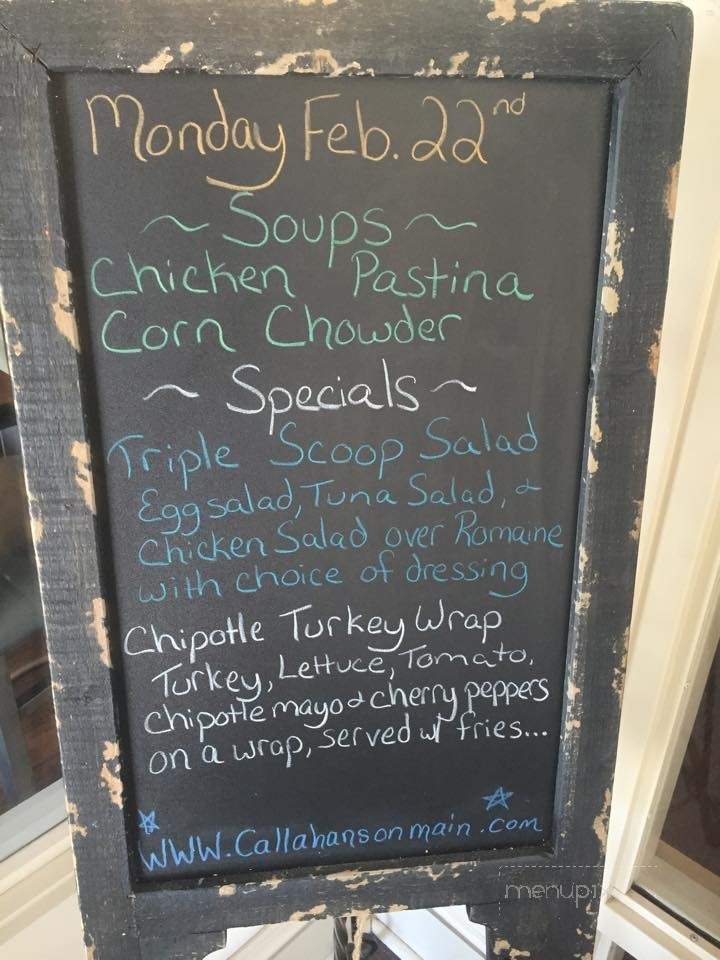 Monday Feb. 22nd
~ Soups ~
Chicken Pastina
Corn Chowder
~ Specials ~
Triple Scoop Salad
Egg salad, Tuna Salad, &
Chicken Salad over Romaine
with choice of dressing
Chipotle Turkey Wrap
Turkey, Lettuce, Tomato,
chipotle mayo & cherry peppers
on a wrap, served w/ fries...
WWW.Callahansonmain.com
menupix